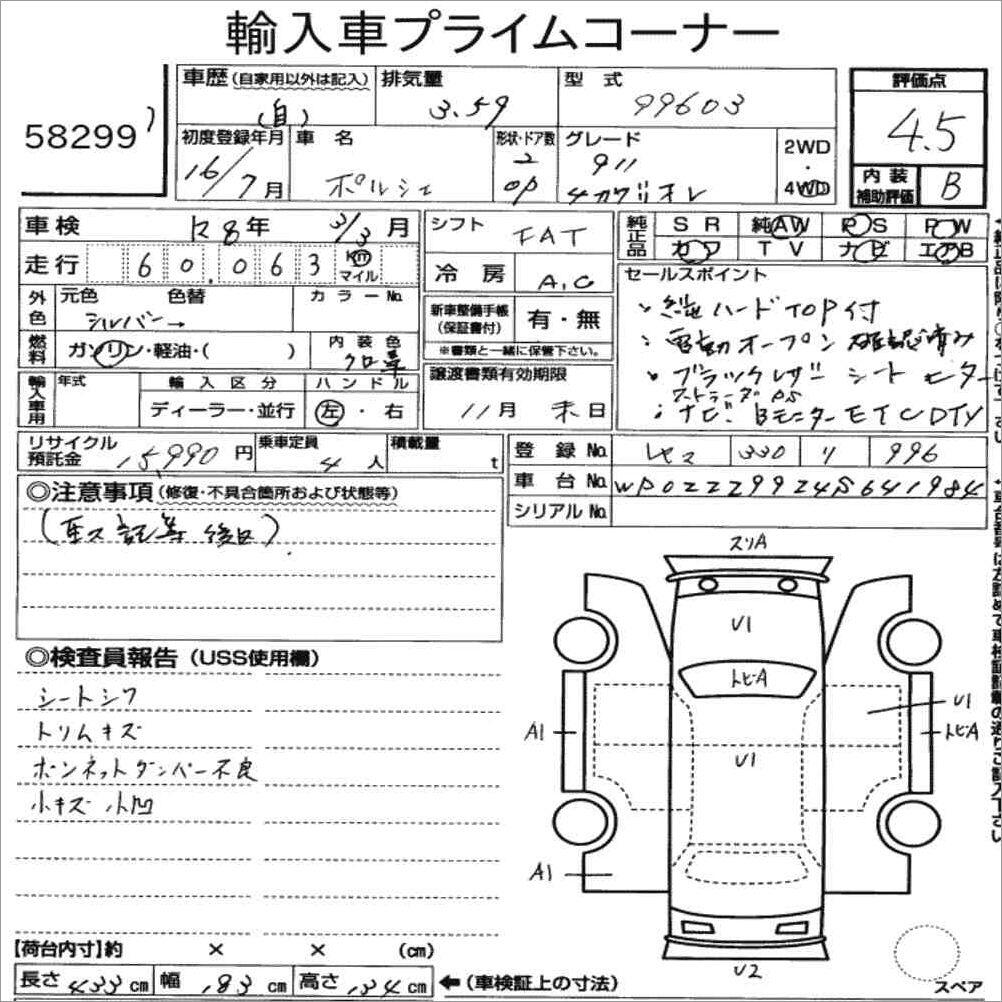 輸入車プライムコーナー
58299
車歴 (自家用以外は記入) (自)
排気量 3.59
型式 99603
評価点 4.5
初度登録年月 16/7月
車名 ポルシェ
形状・ドア数 2 OP
グレード 911 4カブリオレ
2WD・4WD
内装補助評価 B
車検 R8年 3/3月
走行 60,063 km マイル
外色 元色 シルバー→ 色替
カラーNo.
燃料 ガソリン・軽油・( )
内装色 クロ革
輸入車用 年式
輸入区分 ディーラー・並行
ハンドル 左・右
シフト FAT
冷房 A.C
新車整備手帳(保証書付) 有・無
※書類と一緒に保管下さい。
譲渡書類有効期限 11月 末日
純正品 SR 純AW PS PW
カワ TV ナビ エアB
セールスポイント
・純正ハードTOP付
・電動オープン 確認済み
・ブラックレザーシート ヒーター
・ナビ・BモニターETC DTV
リサイクル預託金 15,990円
乗車定員 4人
積載量 t
登録No. 330 996
車台No. WP0ZZZ99Z4S641984
シリアルNo.
◎注意事項 (修復・不具合箇所および状態等)
(取説、記等 後日)
◎検査員報告 (USS使用欄)
シートシワ
トリムキズ
ボンネットダンパー不良
小キズ 小凹
スリA
U1
トビA
U1
トビA
A1
U1
A1
U2
スペア
【荷台内寸】約 × × (cm)
長さ 433 cm 幅 183 cm 高さ 134 cm ←(車検証上の寸法)